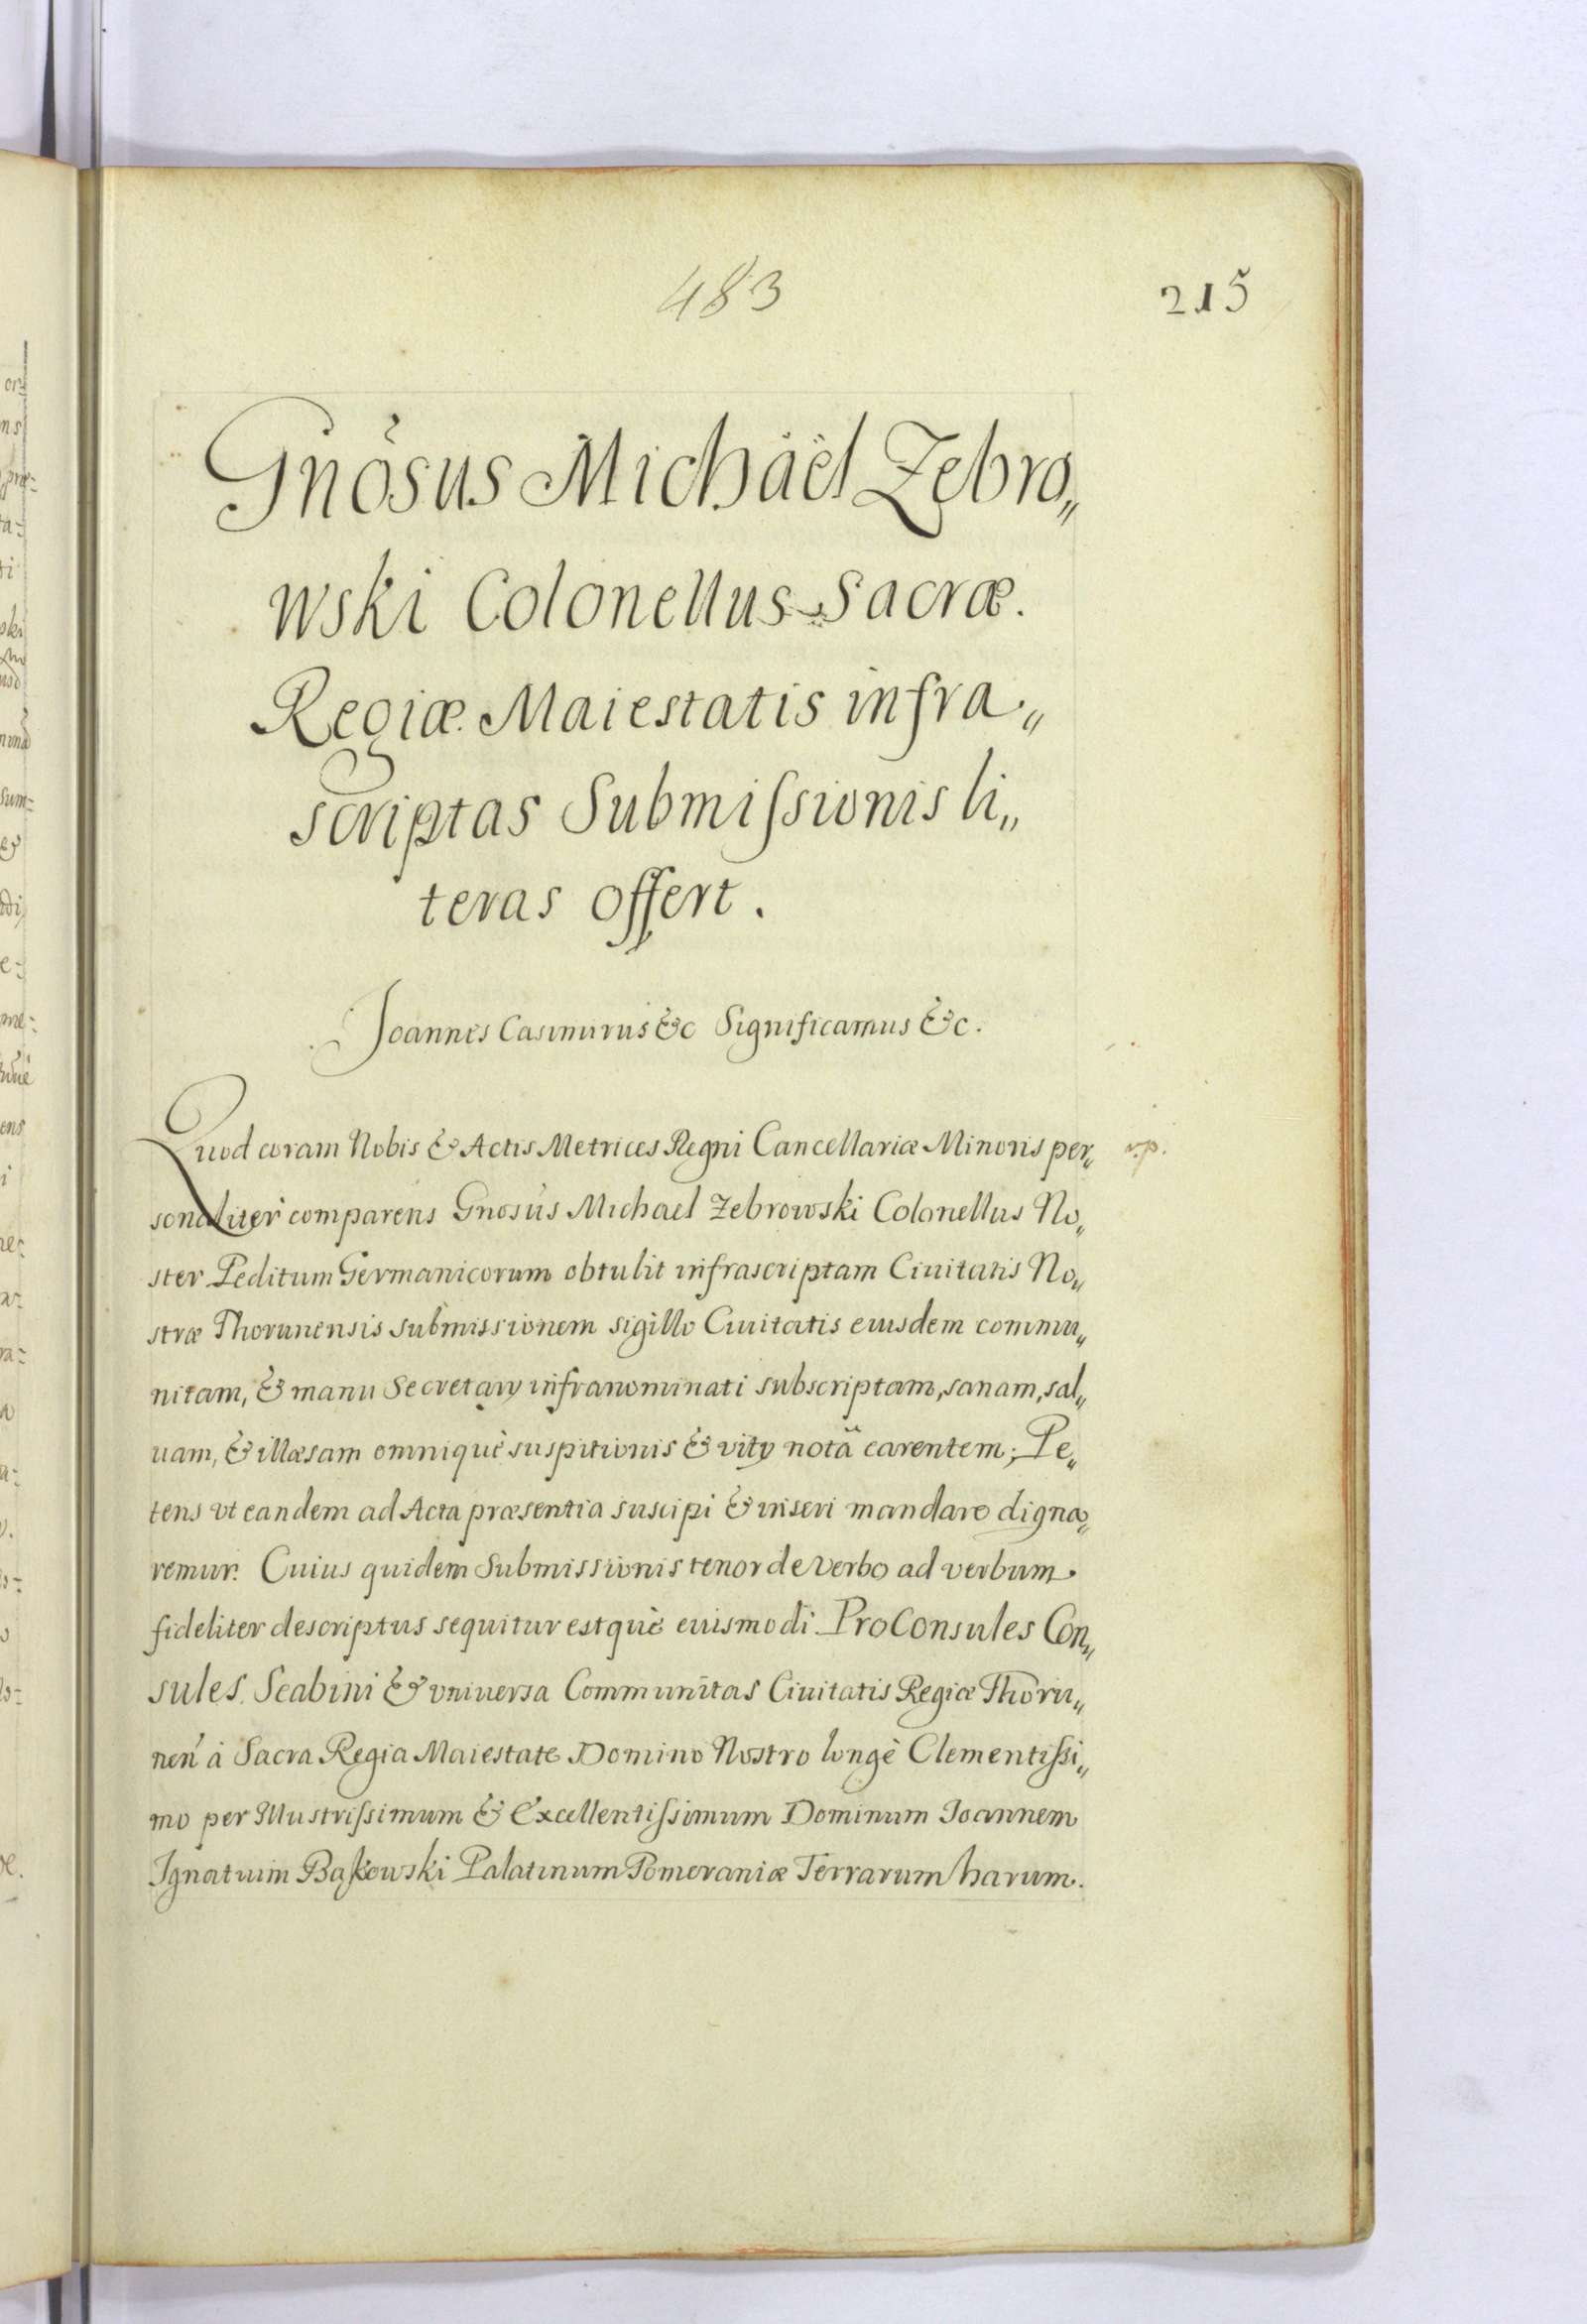 483
215
Gnosus Michäel Zebro„
wski Colonellus Sacræ.
Regiæ Maiestatis infra„
scriptas Submiſsionis li„
teras offert.
Joannes Casimirus &c Significamus &c.
Quod coram Nobis & Actis Metrices Regni Cancellariæ Minoris per„
v.p.
sonaliter comparens Gnosus Michael Zebrowski Colonellus No„
ster Peditum Germanicorum obtulit infrascriptam Ciuitatis No„
stræ Thorunensis submissionem sigillo Ciuitatis eiusdem commu„
nitam, & manu Secretarÿ infranominati subscriptam, sanam, sal„
uam, & illæsam omniquè suspitionis & vitÿ notâ carentem; Pe„
tens vt eandem ad Acta præsentia suscipi & inseri mandare digna„
remur. Cuius quidem Submissionis tenor de verbo ad verbum
fideliter descriptus sequitur estquè eiusmodi. ProConsules Con„
sules. Scabini & vniuersa Communitas Ciuitatis Regiæ Thoru„
nen à Sacra Regia Maiestate Domino Nostro longè Clementiſsi„
mo per Illustriſsimum & Excellentiſsimum Dominum Joannem
Ignatium Bąkowski Palatinum Pomeraniæ Terrarum harum.